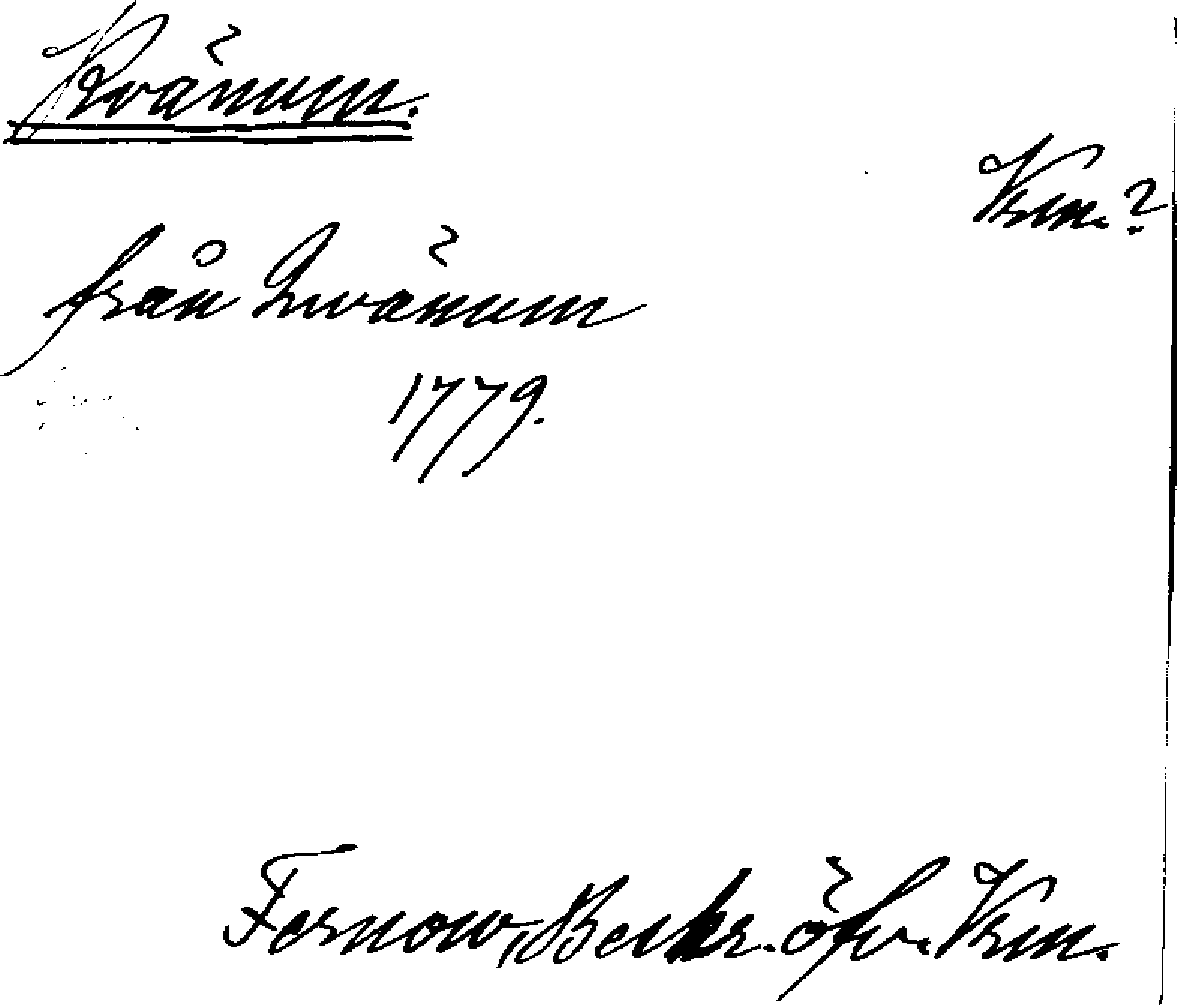 Kvänum.
Vrm.?
från Qvänum
1779.
Fernow, Beskr. öfv. Vrm.